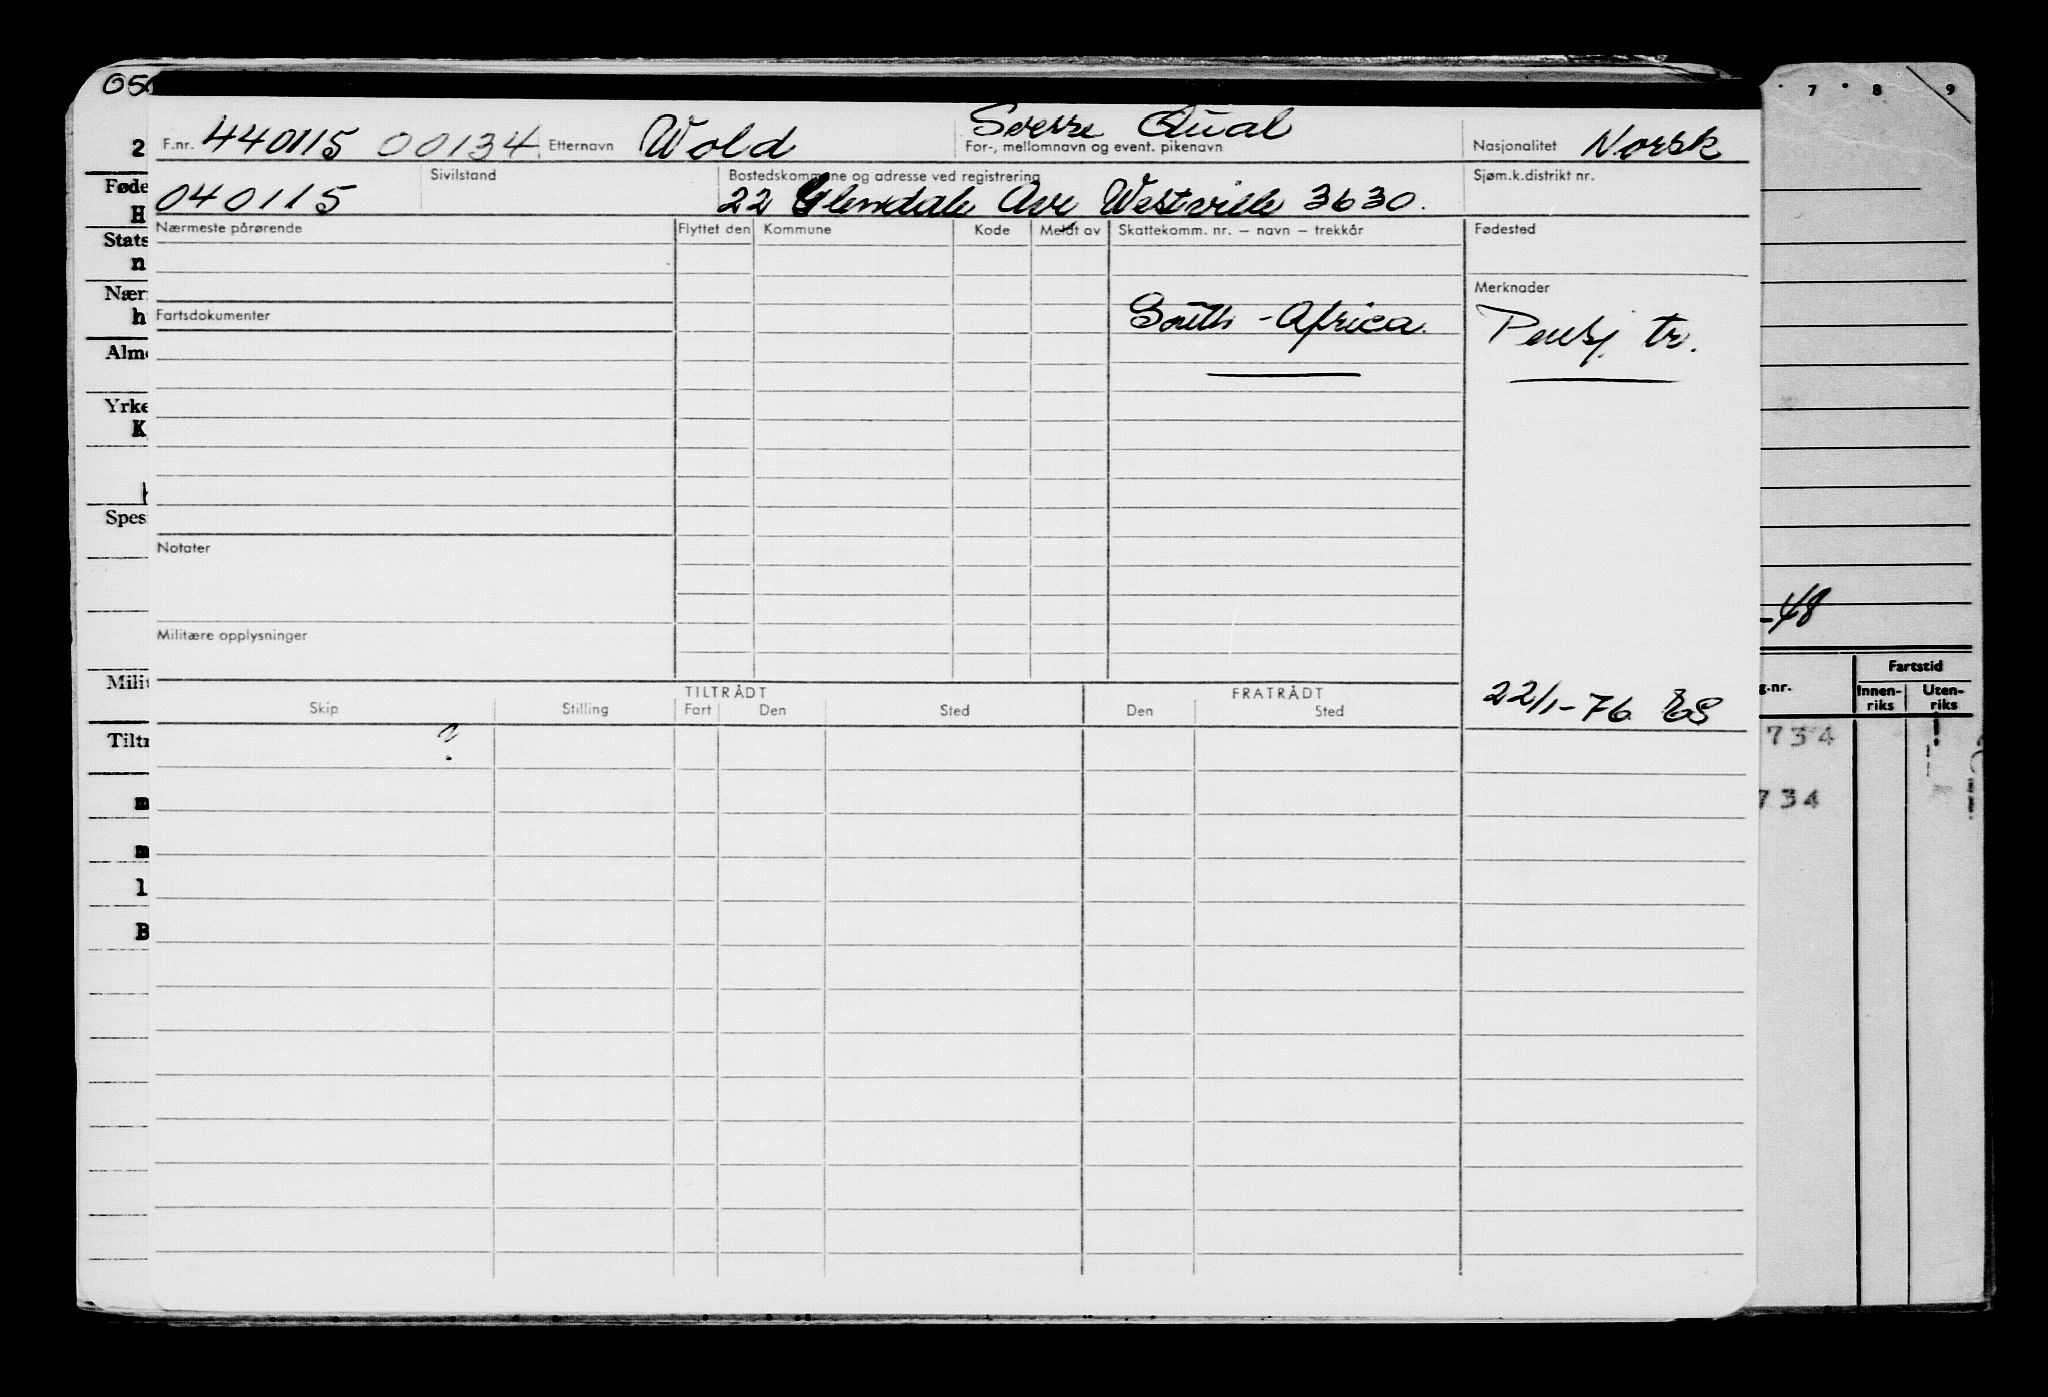 7 8 9
F.nr. 440115 00134 Etternavn Wold Sverre Qual Nasjonalitet Norsk
For-, mellomnavn og event. pikenavn
2
Sivilstand Bostedskommune og adresse ved registrering Sjøm.k.distrikt nr.
040115 22 Glendale Ave Westville 3630.
Nærmeste pårørende Flyttet den Kommune Kode Meldt av Skattekomm. nr. – navn – trekkår Fødested
H
Stats
n
Merknader
Fartsdokumenter South - Africa. Pensj. tr.
h
K
Notater
Militære opplysninger
-48
Fartstid
g.nr. Innen-riks Uten-riks
TILTRÅDT FRATRÅDT
Skip Stilling Fart Den Sted Den Sted
22/1-76 ES
?
734
734
m
m
1
B